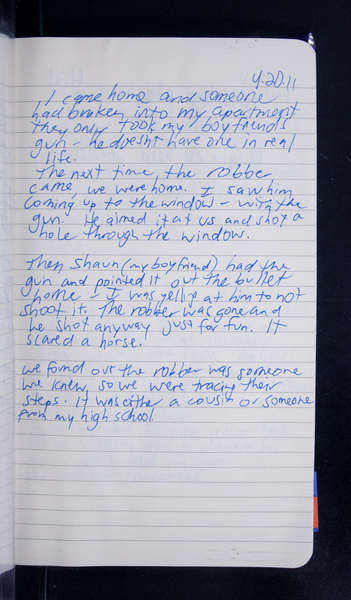 4.20.11
I came home and someone
had broken into my apartment.
they only took my boyfriends
gun - he doesnt have one in real
life.
The next time, the robber
came, we were home. I saw him
coming up to the window - with the
gun. He aimed it at us and shot a
hole through the window.
Then Shaun (my boyfriend) had the
gun and pointed it out the bullet
home - I was yelling at him to not
shoot it. The robber was gone and
he shot anyway just for fun. It
scared a horse.
we found out the robber was someone
we knew, so we were tracing their
steps. It was either a cousin or someone
from my high school